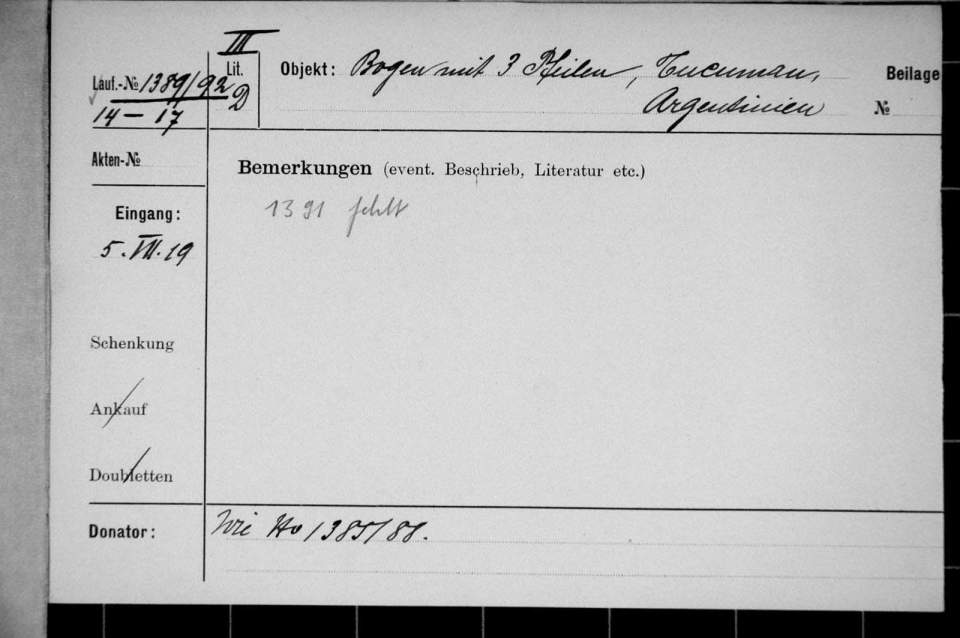 III
Lauf.-№ 1389/92
14 – 17
Lit.
D
Objekt: Bogen mit 3 Pfeilen, Tucuman,
Argentinien
Beilage
№
Akten-№
Bemerkungen (event. Beschrieb, Literatur etc.)
1391 fehlt
Eingang:
5. VII. 19
Schenkung
Ankauf
Doubletten
Donator: Wie No 1385/88.